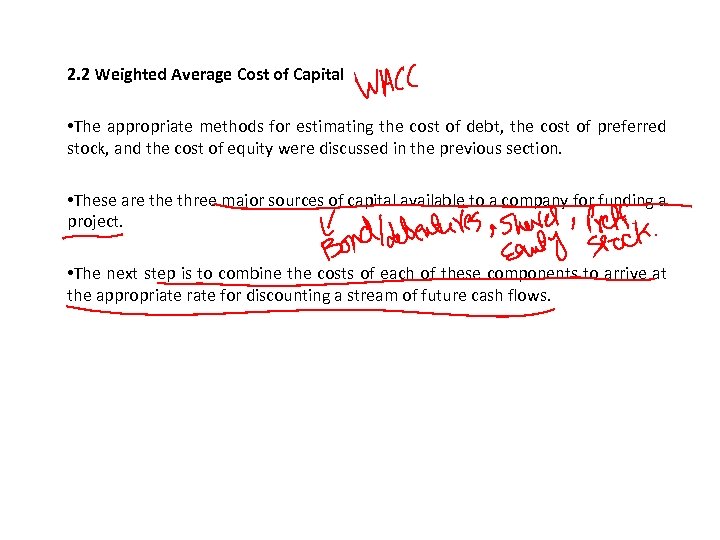 2.2 Weighted Average Cost of Capital
WACC
•The appropriate methods for estimating the cost of debt, the cost of preferred
stock, and the cost of equity were discussed in the previous section.
•These are the three major sources of capital available to a company for funding a
project.
Bond/debentures, Share/Equity, Preft Stock.
•The next step is to combine the costs of each of these components to arrive at
the appropriate rate for discounting a stream of future cash flows.